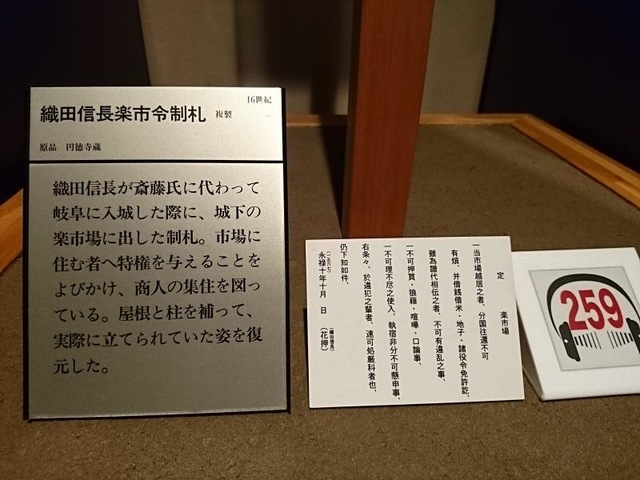 16世紀
織田信長楽市令制札 複製
原品 円徳寺蔵
織田信長が斎藤氏に代わって
岐阜に入城した際に、城下の
楽市場に出した制札。市場に
住む者へ特権を与えることを
よびかけ、商人の集住を図っ
ている。屋根と柱を補って、
実際に立てられていた姿を復
元した。
定 楽市場
一当市場越居之者、分国往還不可
有煩、并借銭借米・地子・諸役令免許訖、
雖為譜代相伝之者、不可有違乱之事、
一不可押買・狼藉・喧嘩・口論事、
一不可理不尽之使入、執宿非分不可懸申事、
右条々、於違犯之輩者、速可処厳科者也、
仍下知如件、
(一五六七)
永禄十年十月 日 (花押)
(織田信長)
259